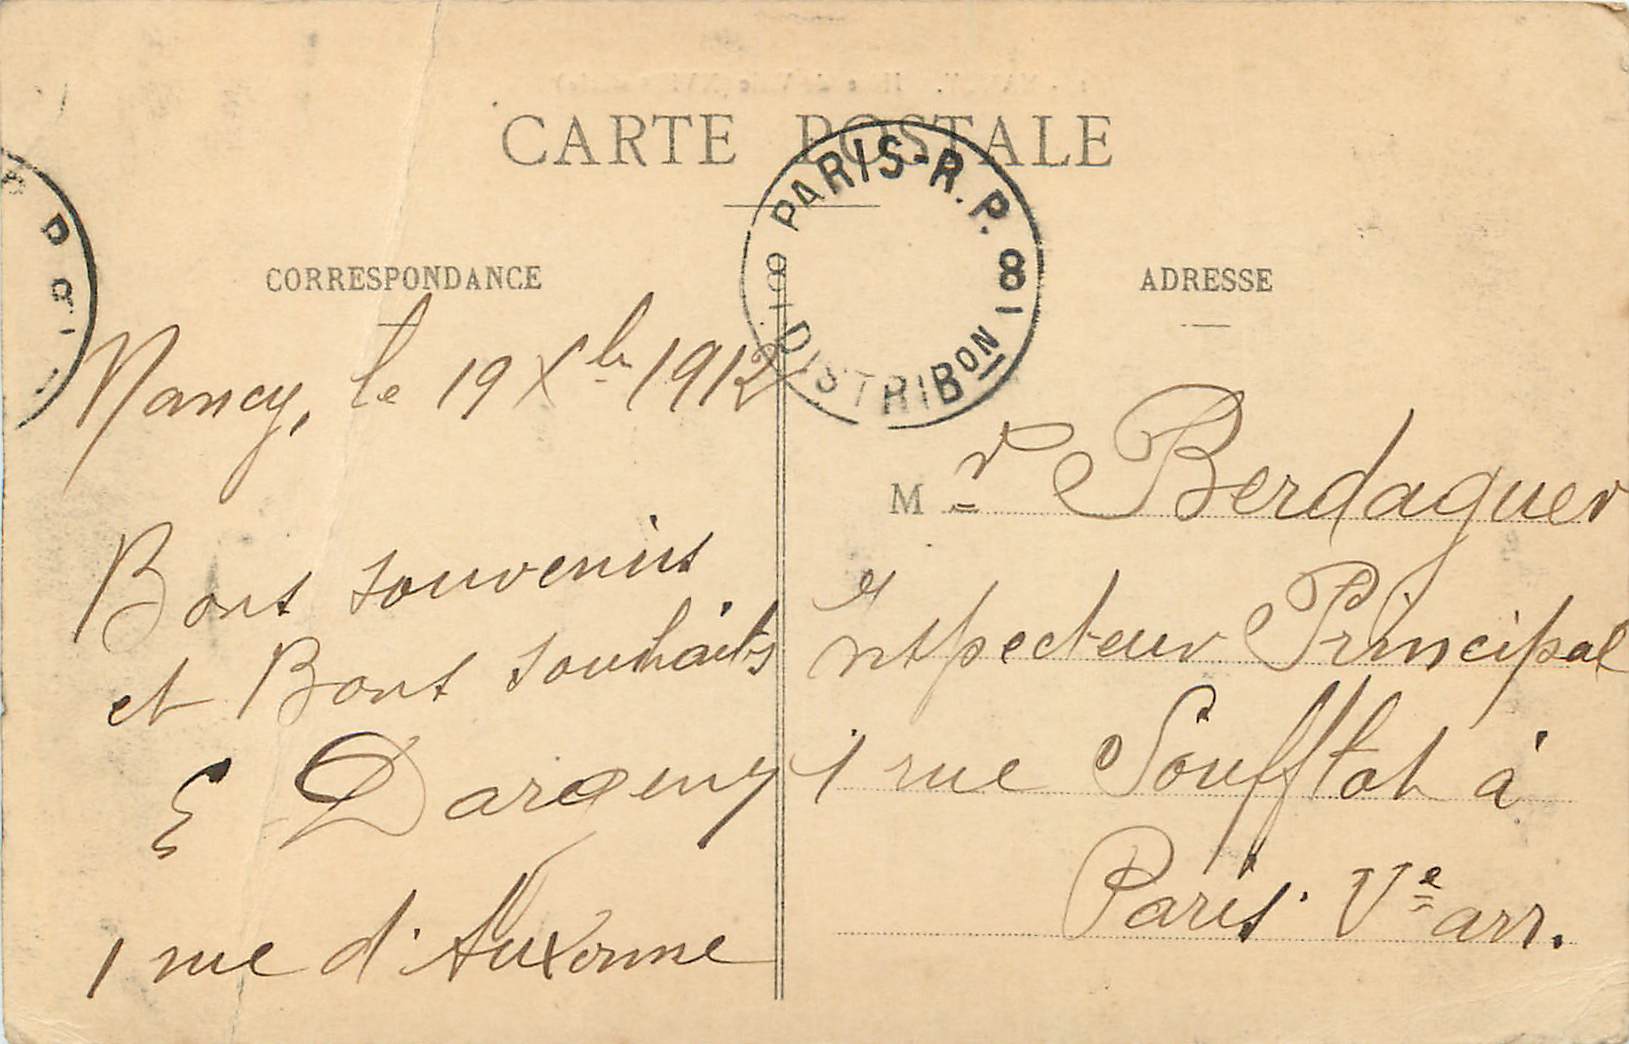 CARTE POSTALE
PARIS-R.P.
8 8
DISTRIBON
CORRESPONDANCE
Nancy, le 19 Xbre 1912
Bons souvenirs
et Bons souhaits
E Dargeny
1 rue d'Auxonne
ADRESSE
Mr Berdaguer
Inspecteur Principal
1 rue Soufflot à
Paris Ve arr.